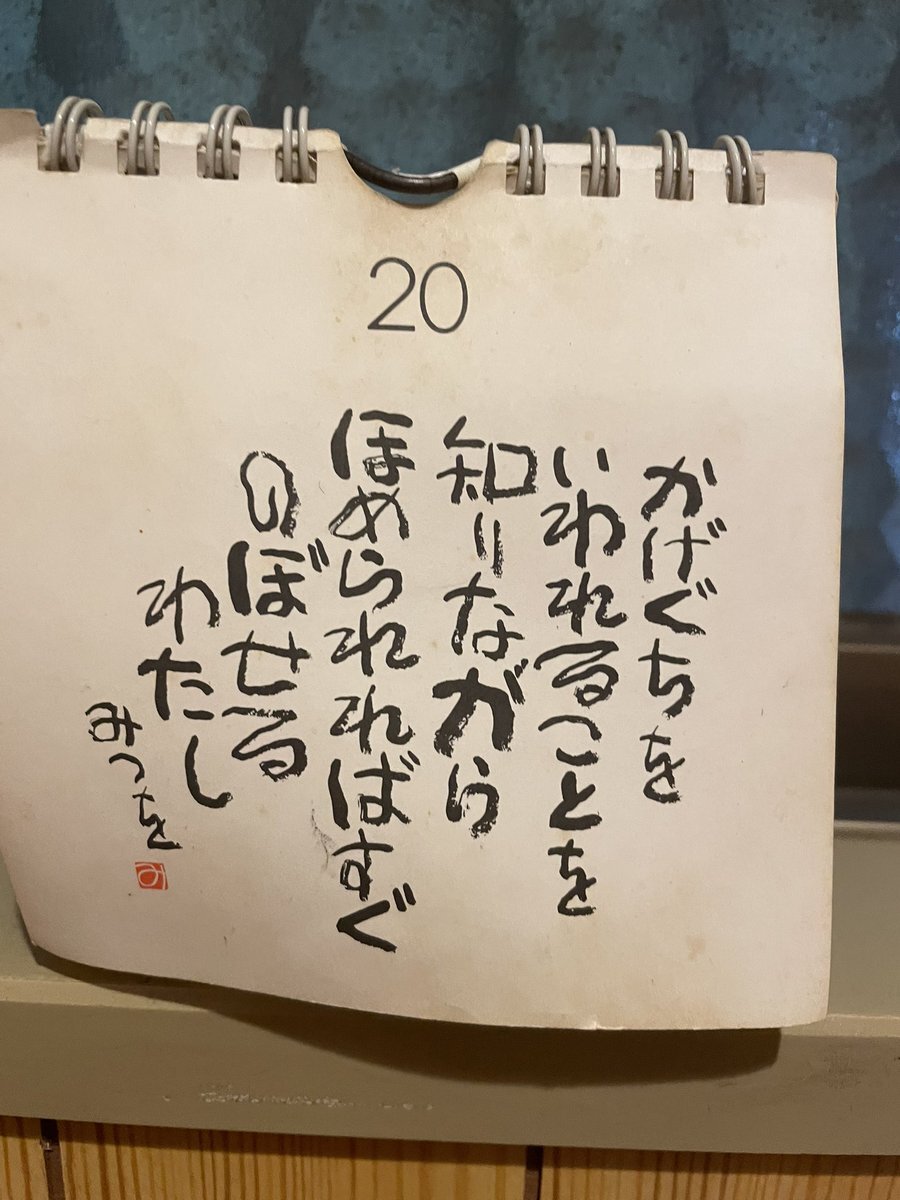 20
かげぐちを
いわれることを
知りながら
ほめられればすぐ
のぼせる
わたし
みつを
み